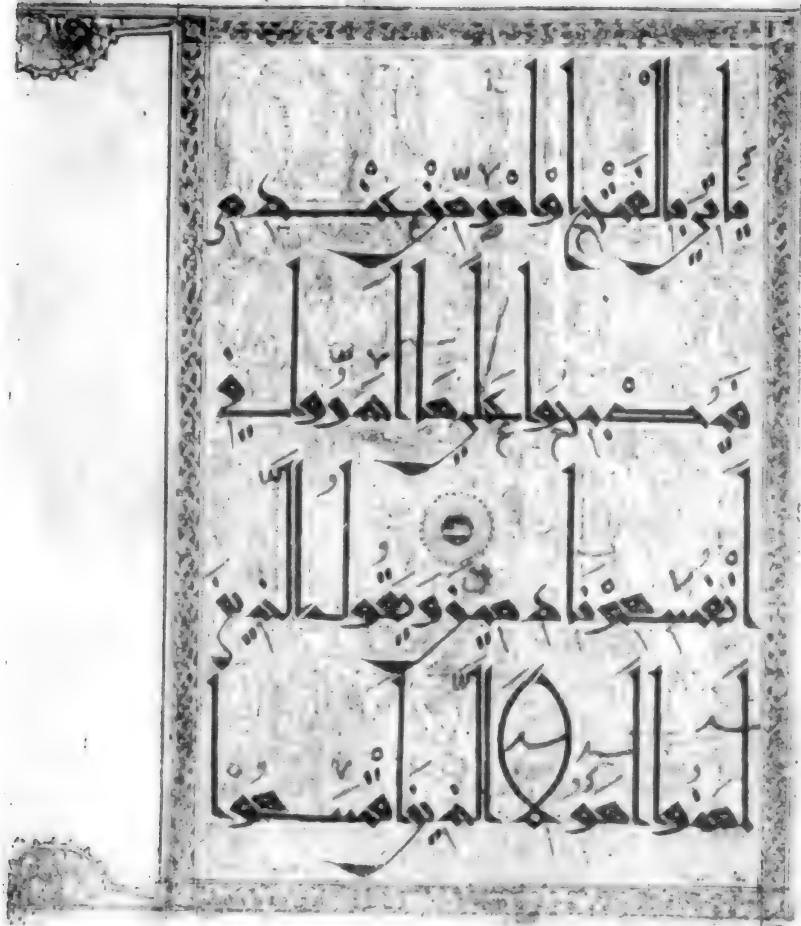 يَأْتِيَ بِالْفَتْحِ أَوْ أَمْرٍ مِنْ عِنْدِهِ
فَيُصْبِحُوا عَلَى مَا أَسَرُّوا فِي
أَنْفُسِهِمْ نَادِمِينَ وَيَقُولُ الَّذِينَ
آمَنُوا أَهَؤُلَاءِ الَّذِينَ أَقْسَمُوا